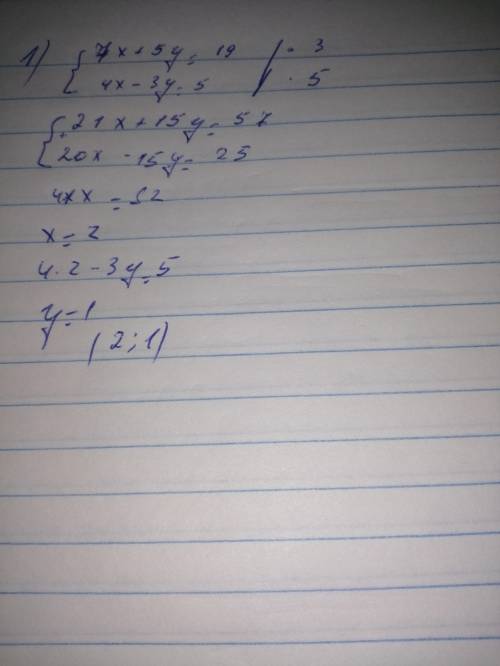 1) { 7x + 5y = 19 | · 3
4x - 3y = 5 | · 5
{ 21x + 15y = 57
20x - 15y = 25
x = 2
4 · 2 - 3y = 5
y = 1
(2; 1)